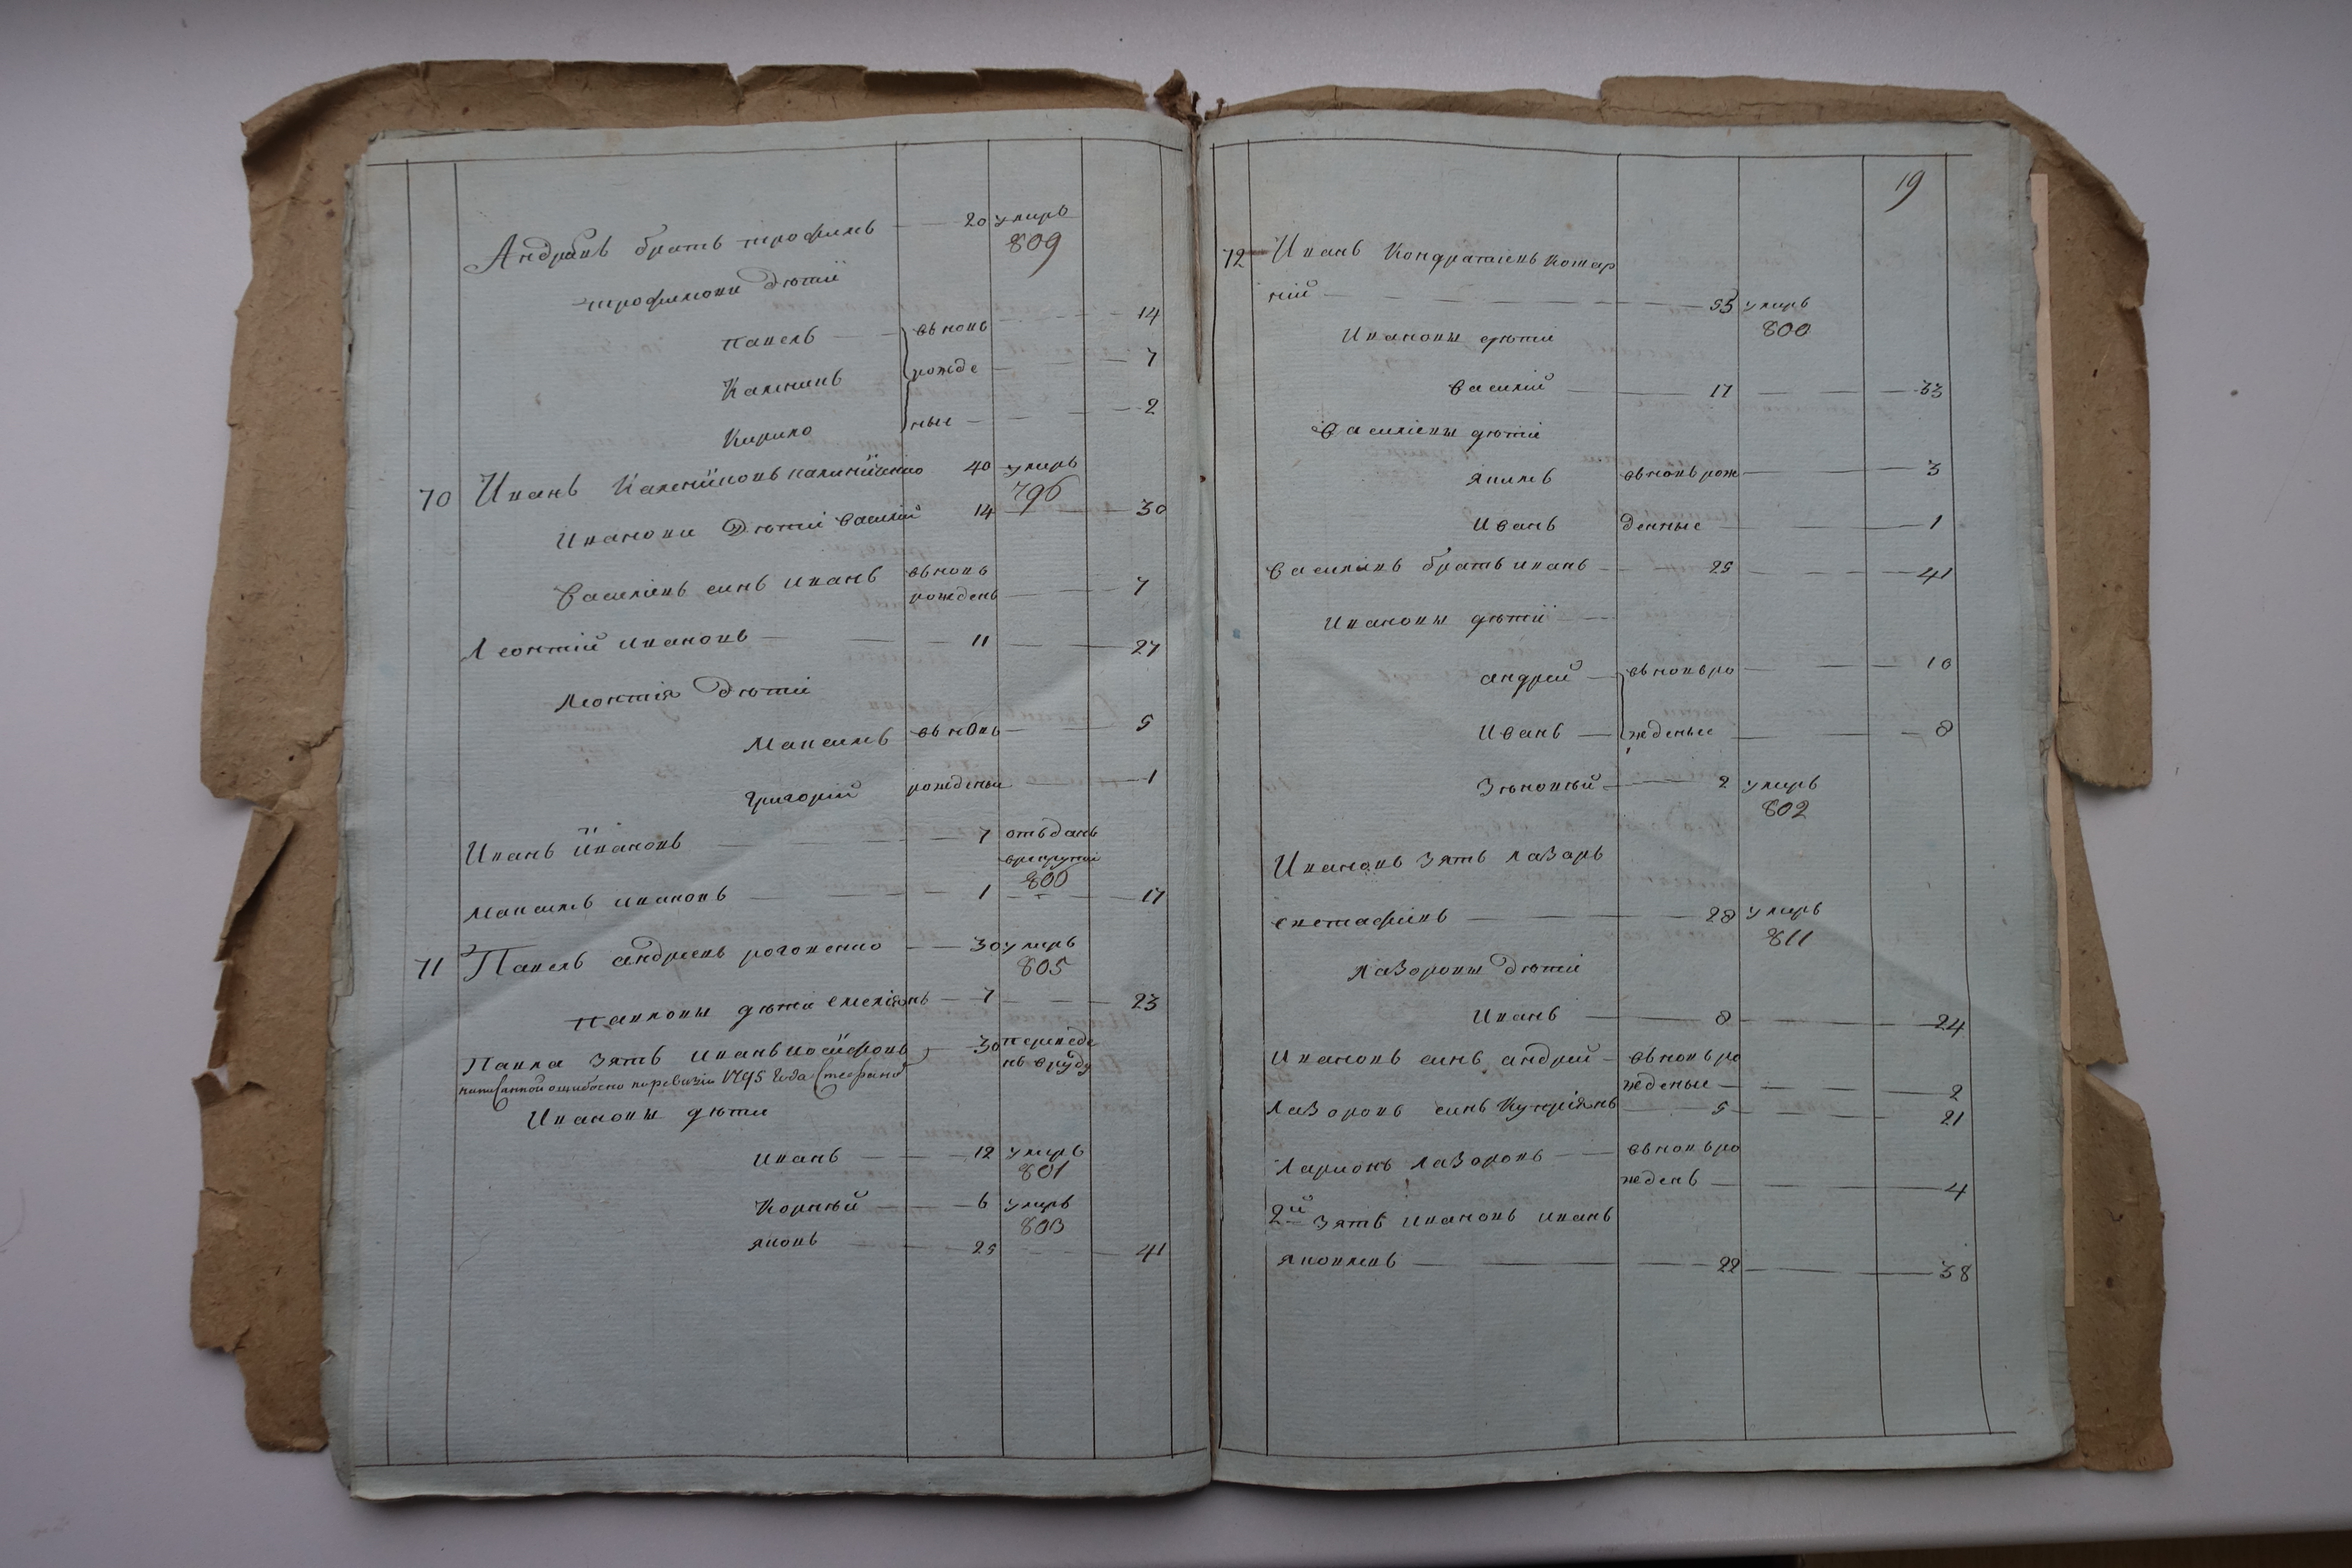 Андрѣевъ братъ трофимъ — 20 умиръ
809
трофимови дѣти
павелъ — вновь — 14
Каленикъ рожде — 7
Кирило ные — 2
70 Иванъ Калениковъ каленическо 40 умиръ
796
Ивановы Дѣти василій 14 — 30
василіевъ синъ иванъ вновь
рожденъ — 7
Леонтій ивановъ — 11 — 27
Леонтія дѣти
Максимъ вновь — 5
григорій рождены — 1
Иванъ ивановъ — 7 отъданъ
врекруты
800
Максимъ ивановъ — 1 — 17
71 Павелъ андреевъ роговенко — 30 умиръ
805
павловы дѣти емеліянъ — 7 — 23
Павла зять иванъ иосифовъ — 30 переведе
нъ вруду
написанной ошибочно поревизіи 1795 года Стефаномъ
Ивановы дѣти
иванъ — 12 умиръ
801
Корнѣй — 6 умиръ
803
яковъ — 25 — 41
19
72 Иванъ Кондратьевъ Котар
ній — 55 умиръ
800
Ивановы дѣти
василій — 17 — 33
василіевы дѣти
якимъ вновь рож — 3
иванъ денные — 1
василіевъ братъ иванъ — 25 — 41
Ивановы дѣти
андрей — вновь ро — 10
иванъ — жденые — 8
Зѣновый — 2 умиръ
802
Ивановъ зять лазарь
евстафіевъ — 28 умиръ
811
лазоровы дѣти
иванъ — 8 — 24
ивановъ синъ андрей — вновь ро
жденые — 2
лазоровъ синъ Купріянъ 5 — 21
ларионъ лазоровъ — вновь ро
жденъ — 4
2й зять ивановъ иванъ
яковлевъ — 22 — 38